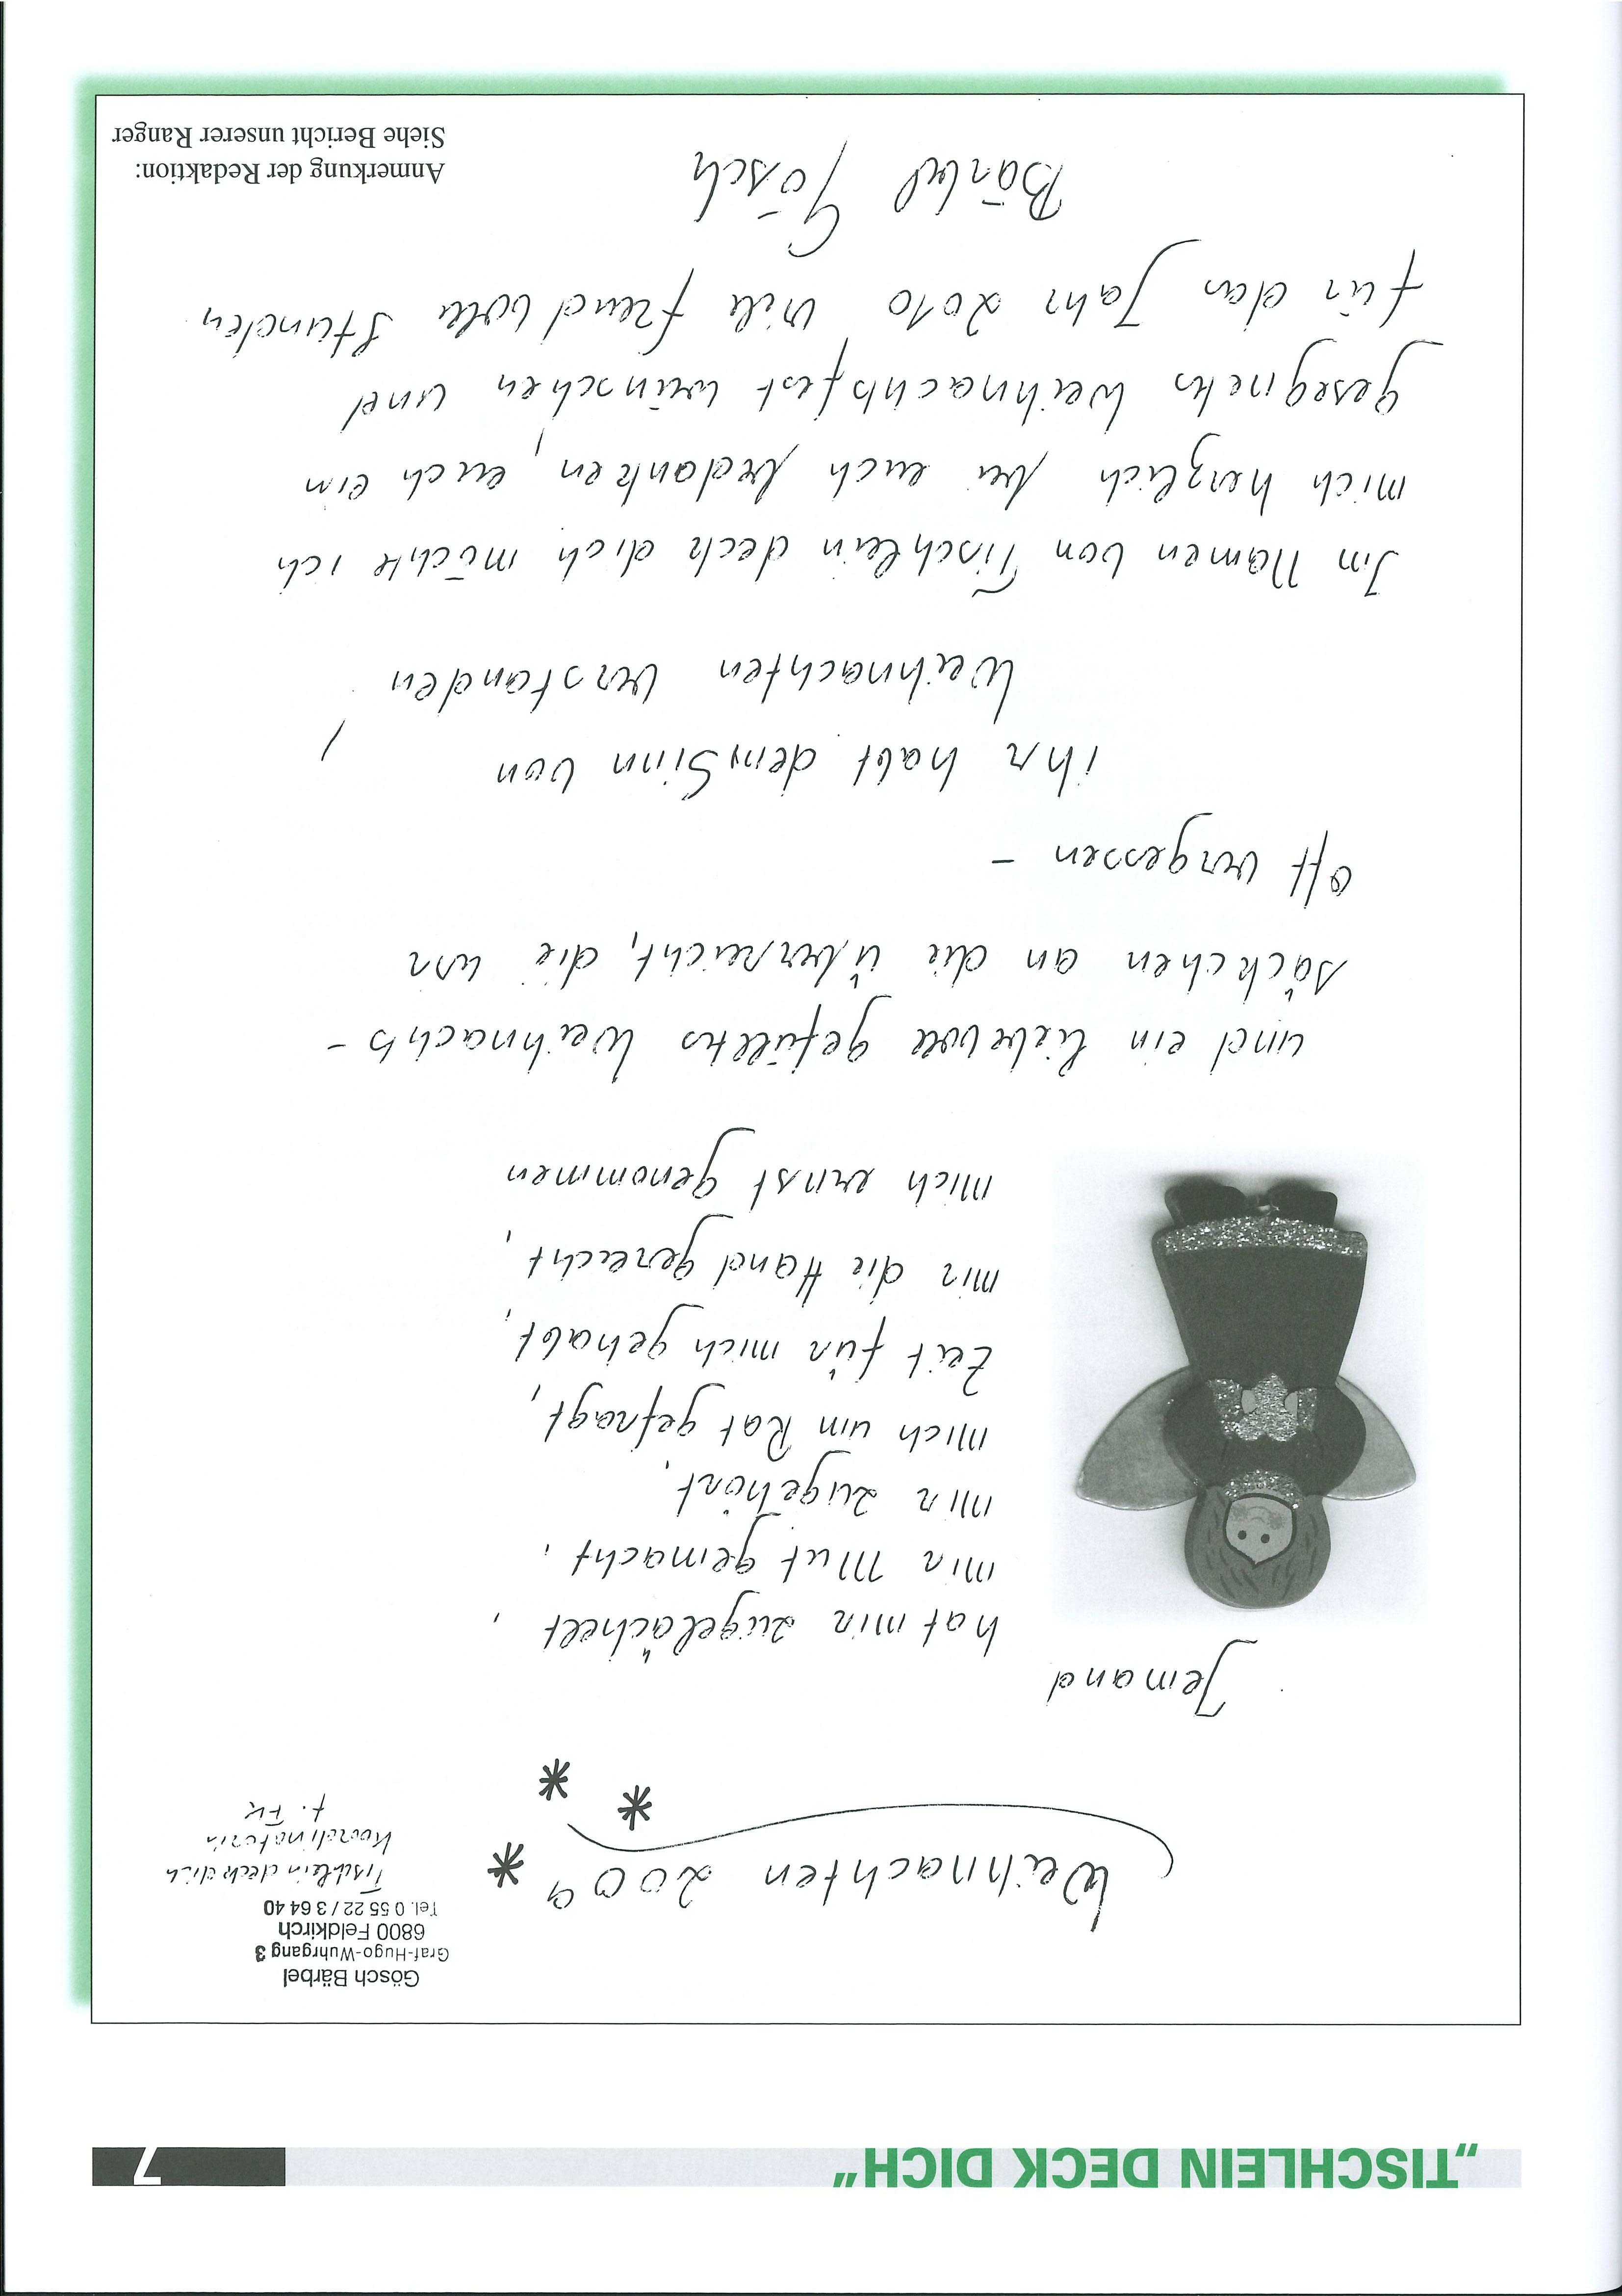 „TISCHLEIN DECK DICH“
7
Gösch Bärbel
Graf-Hugo-Wuhrgang 3
6800 Feldkirch
Tel. 0 55 22 / 3 64 40
Tischlein deck dich
Koordinatorin
f. FK
Weihnachten 2009
Jemand
hat mir zugelächelt,
mir Mut gemacht,
mir zugehört,
mich um Rat gefragt,
Zeit für mich gehabt,
mir die Hand gereicht,
mich ernst genommen
und ein liebevoll gefülltes Weihnachts-
säckchen an die überreicht, die wir
oft vergessen -
ihr habt den Sinn von
Weihnachten verstanden!
Im Namen von Tischlein deck dich möchte ich
mich herzlich bei euch bedanken, euch ein
gesegnetes Weihnachtsfest wünschen und
für das Jahr 2010 viele freudvolle Stunden
Bärbel Gösch
Anmerkung der Redaktion:
Siehe Bericht unserer Ranger